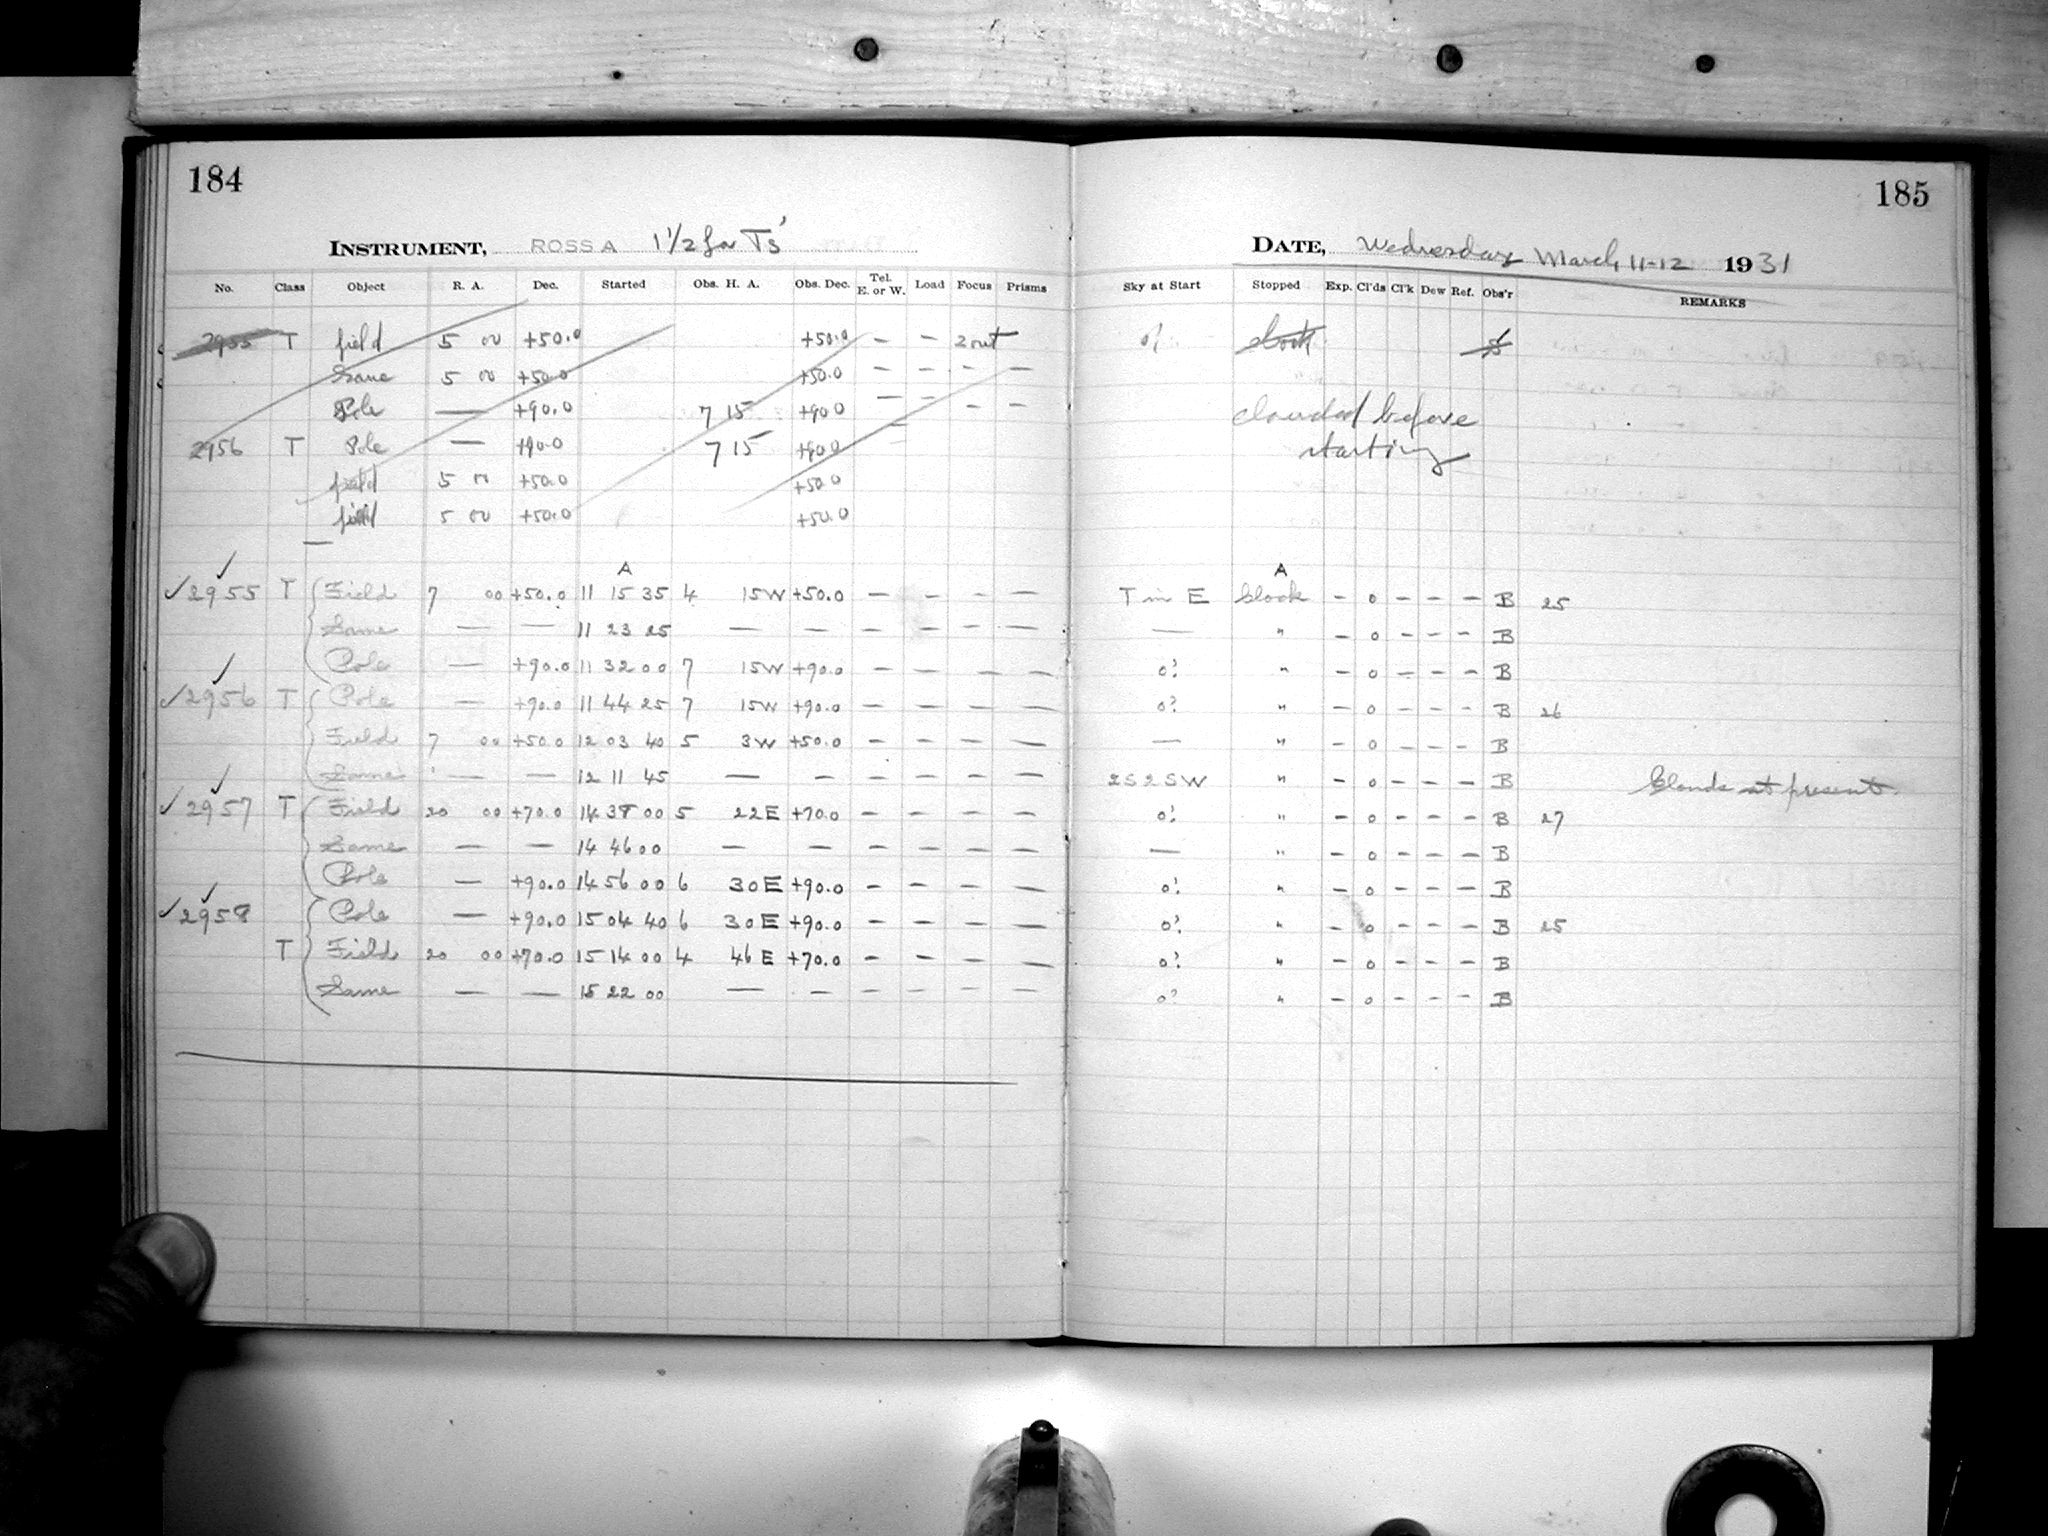 184
INSTRUMENT, ROSS A 1 1/2 for T's
No. Class Object R. A. Dec. Started Obs. H. A. Obs. Dec. Tel. E. or W. Load Focus Prisms
2955 T field 5 00 +50.0 +50.0 — — 2 out
Same 5 00 +50.0 +50.0 — — — —
Pole — +90.0 7 15 +90.0 — — — —
2956 T Pole — +90.0 7 15 +90.0 —
field 5 00 +50.0 +50.0
field 5 00 +50.0 +50.0
A
✓ 2955 ✓ T Field 7 00 +50.0 11 15 35 4 15W +50.0 — — — —
Same — — 11 23 25 — — — — — —
Pole — +90.0 11 32 00 7 15W +90.0 — — — —
✓ 2956 ✓ T Pole — +90.0 11 44 25 7 15W +90.0 — — — —
Field 7 00 +50.0 12 03 40 5 3W +50.0 — — — —
Same — — 12 11 45 — — — — — —
✓ 2957 ✓ T Field 20 00 +70.0 14 38 00 5 22E +70.0 — — — —
Same — — 14 46 00 — — — — — —
Pole — +90.0 14 56 00 6 30E +90.0 — — — —
✓ 2958 ✓ Pole — +90.0 15 04 40 6 30E +90.0 — — — —
T Field 20 00 +70.0 15 14 00 4 46E +70.0 — — — —
Same — — 15 22 00 — — — — — —
185
DATE, Wednesday March 11-12 1931
Sky at Start Stopped Exp. Cl'ds Cl'k Dew Ref. Obs'r REMARKS
clock
clouded before
starting
A
T in E Clock — 0 — — — B 25
— " — 0 — — — B
0? " — 0 — — — B
0? " — 0 — — — B 26
— " — 0 — — — B
2S 2SW " — 0 — — — B Clouds at present.
0? " — 0 — — — B 27
— " — 0 — — — B
0? " — 0 — — — B
0? " — 0 — — — B 25
0? " — 0 — — — B
0? " — 0 — — — B